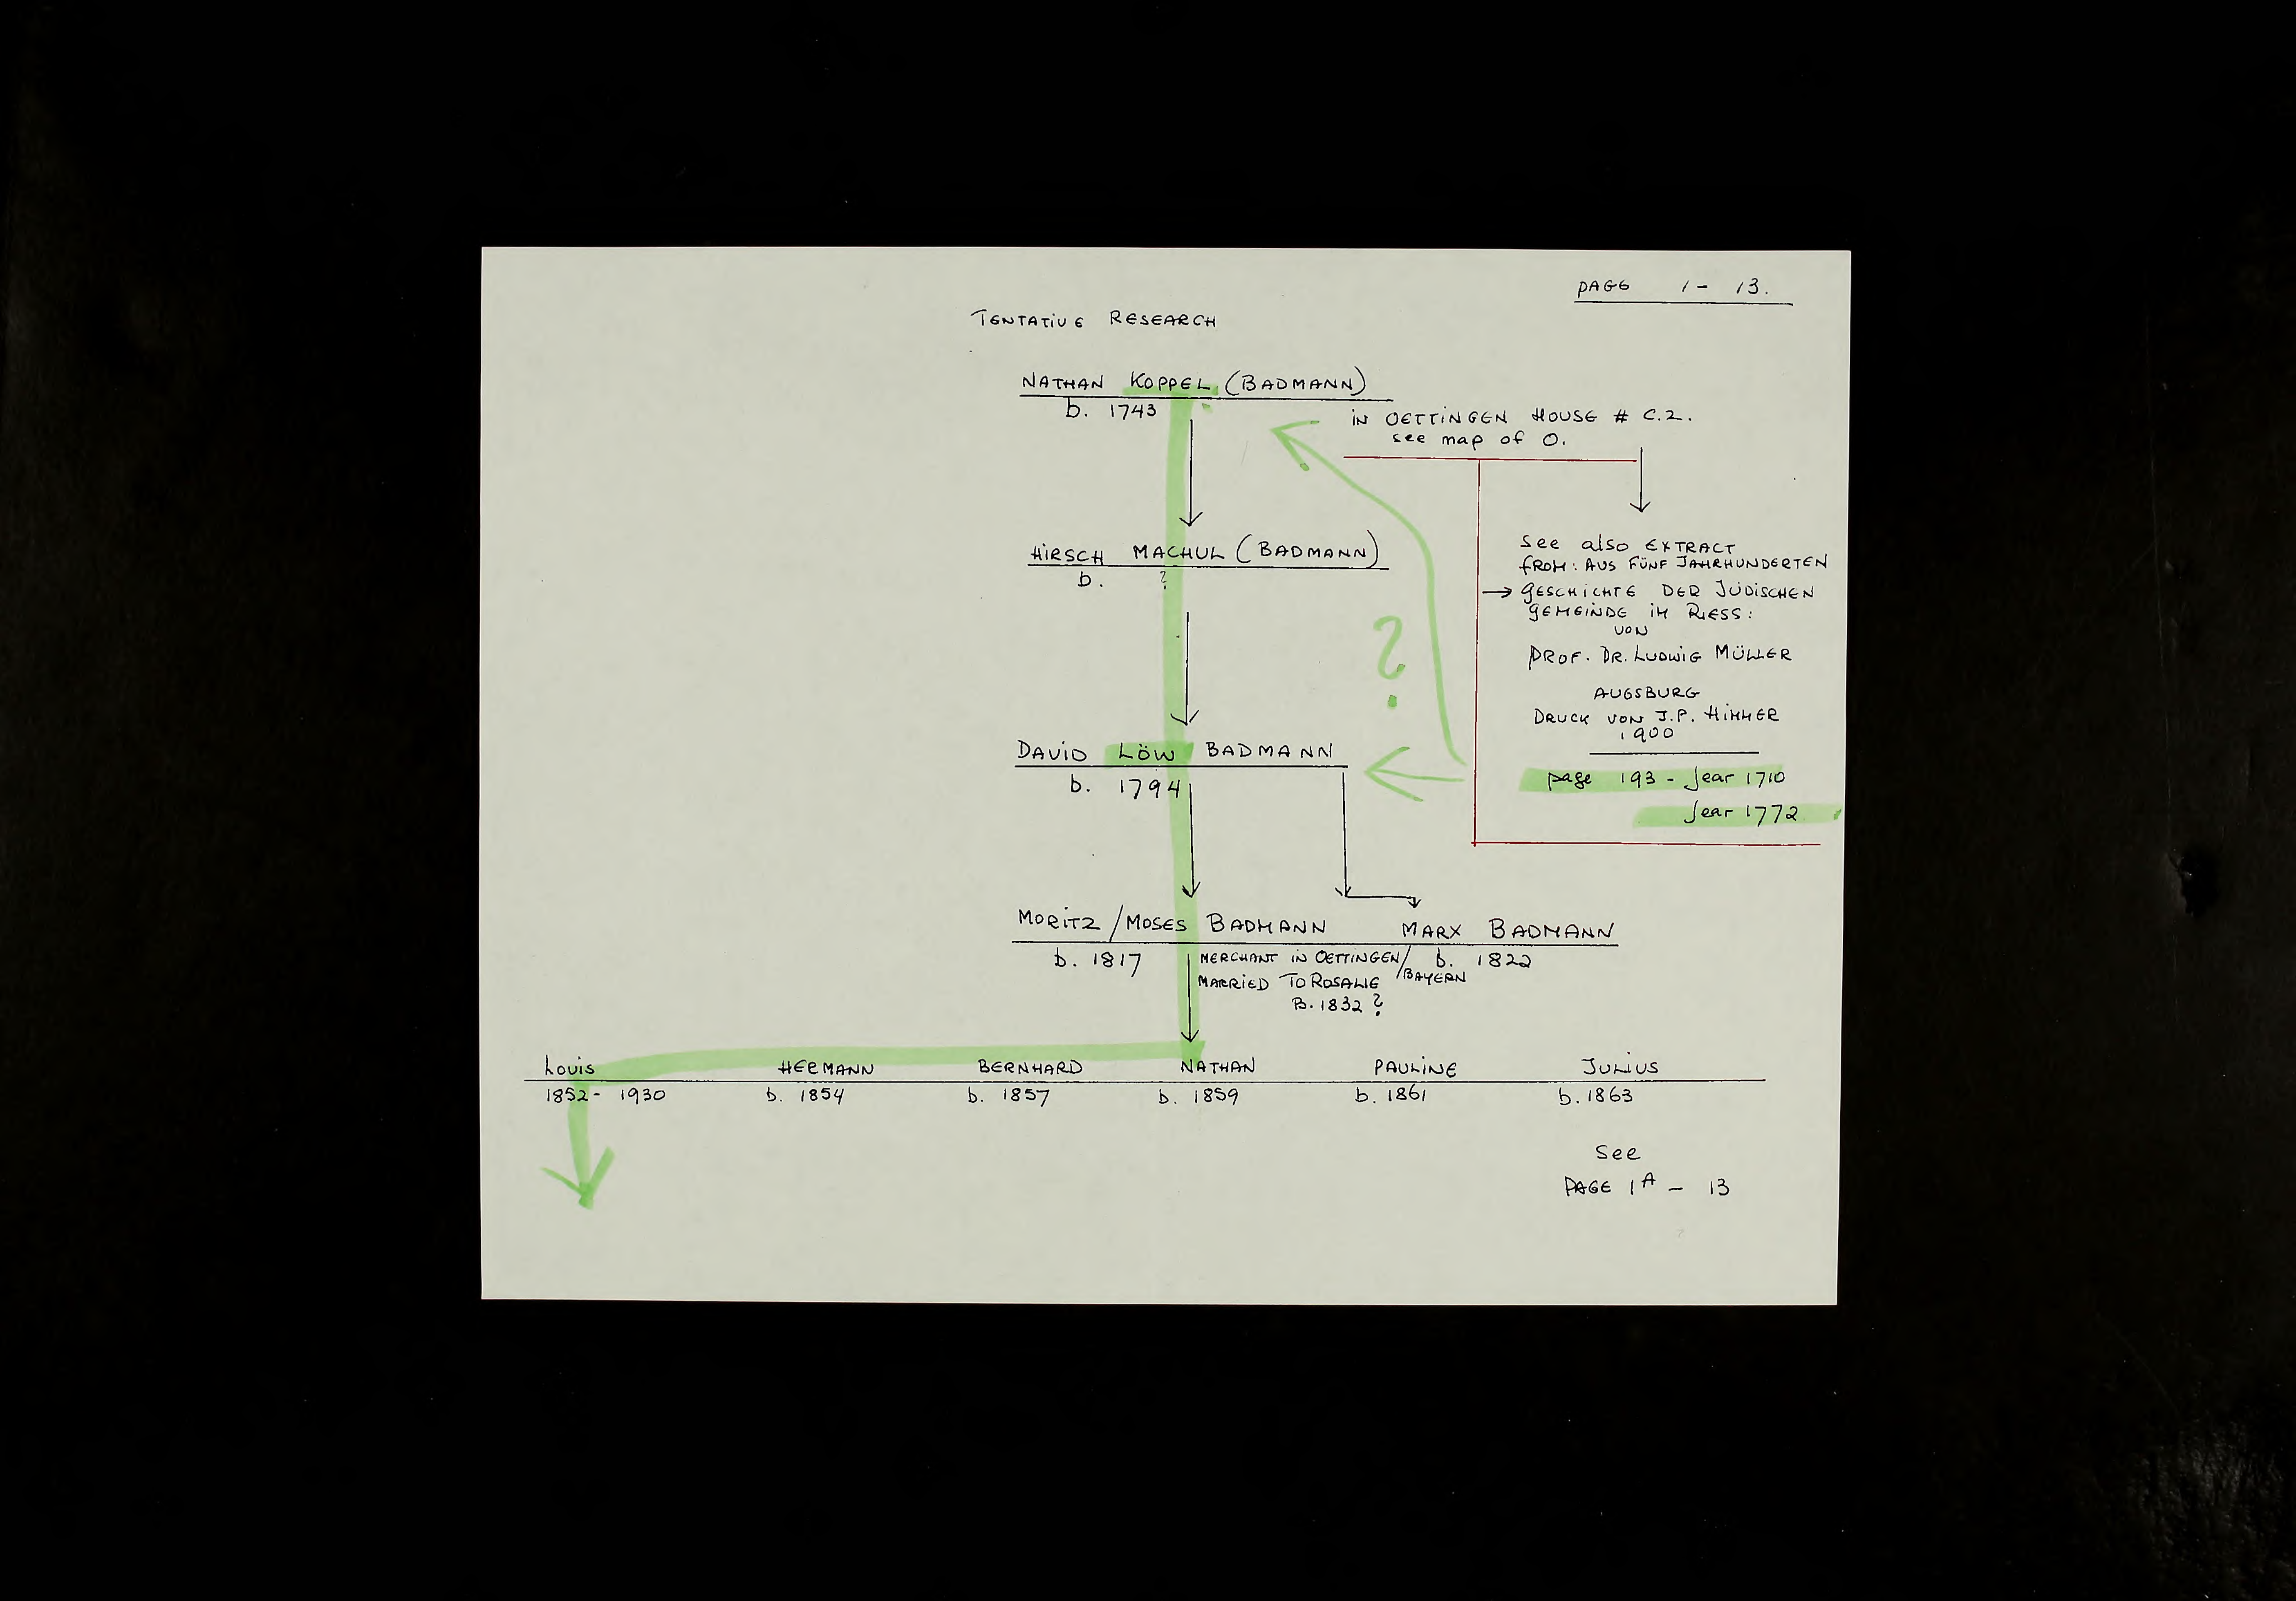 PAGE 1 - 13.
TENTATIVE RESEARCH
NATHAN KOPPEL (BADMANN)
b. 1743
IN OETTINGEN HOUSE # C.2.
see map of O.
HIRSCH MACHUL (BADMANN)
b. ?
See also EXTRACT
FROM: AUS FÜNF JAHRHUNDERTEN
→ GESCHICHTE DER JÜDISCHEN
GEMEINDE IM RIESS:
VON
PROF. DR. LUDWIG MÜLLER
AUGSBURG
DRUCK VON J.P. HIMMER
1900
page 193 - Jear 1710
Jear 1772
?
DAVID LÖW BADMANN
b. 1794
MORITZ / MOSES BADMANN MARX BADMANN
b. 1817 MERCHANT IN OETTINGEN/ b. 1822
MARRIED TO ROSALIE /BAYERN
B. 1832 ?
LOUIS HERMANN BERNHARD NATHAN PAULINE JULIUS
1852 - 1930 b. 1854 b. 1857 b. 1859 b. 1861 b. 1863
See
PAGE 1A - 13